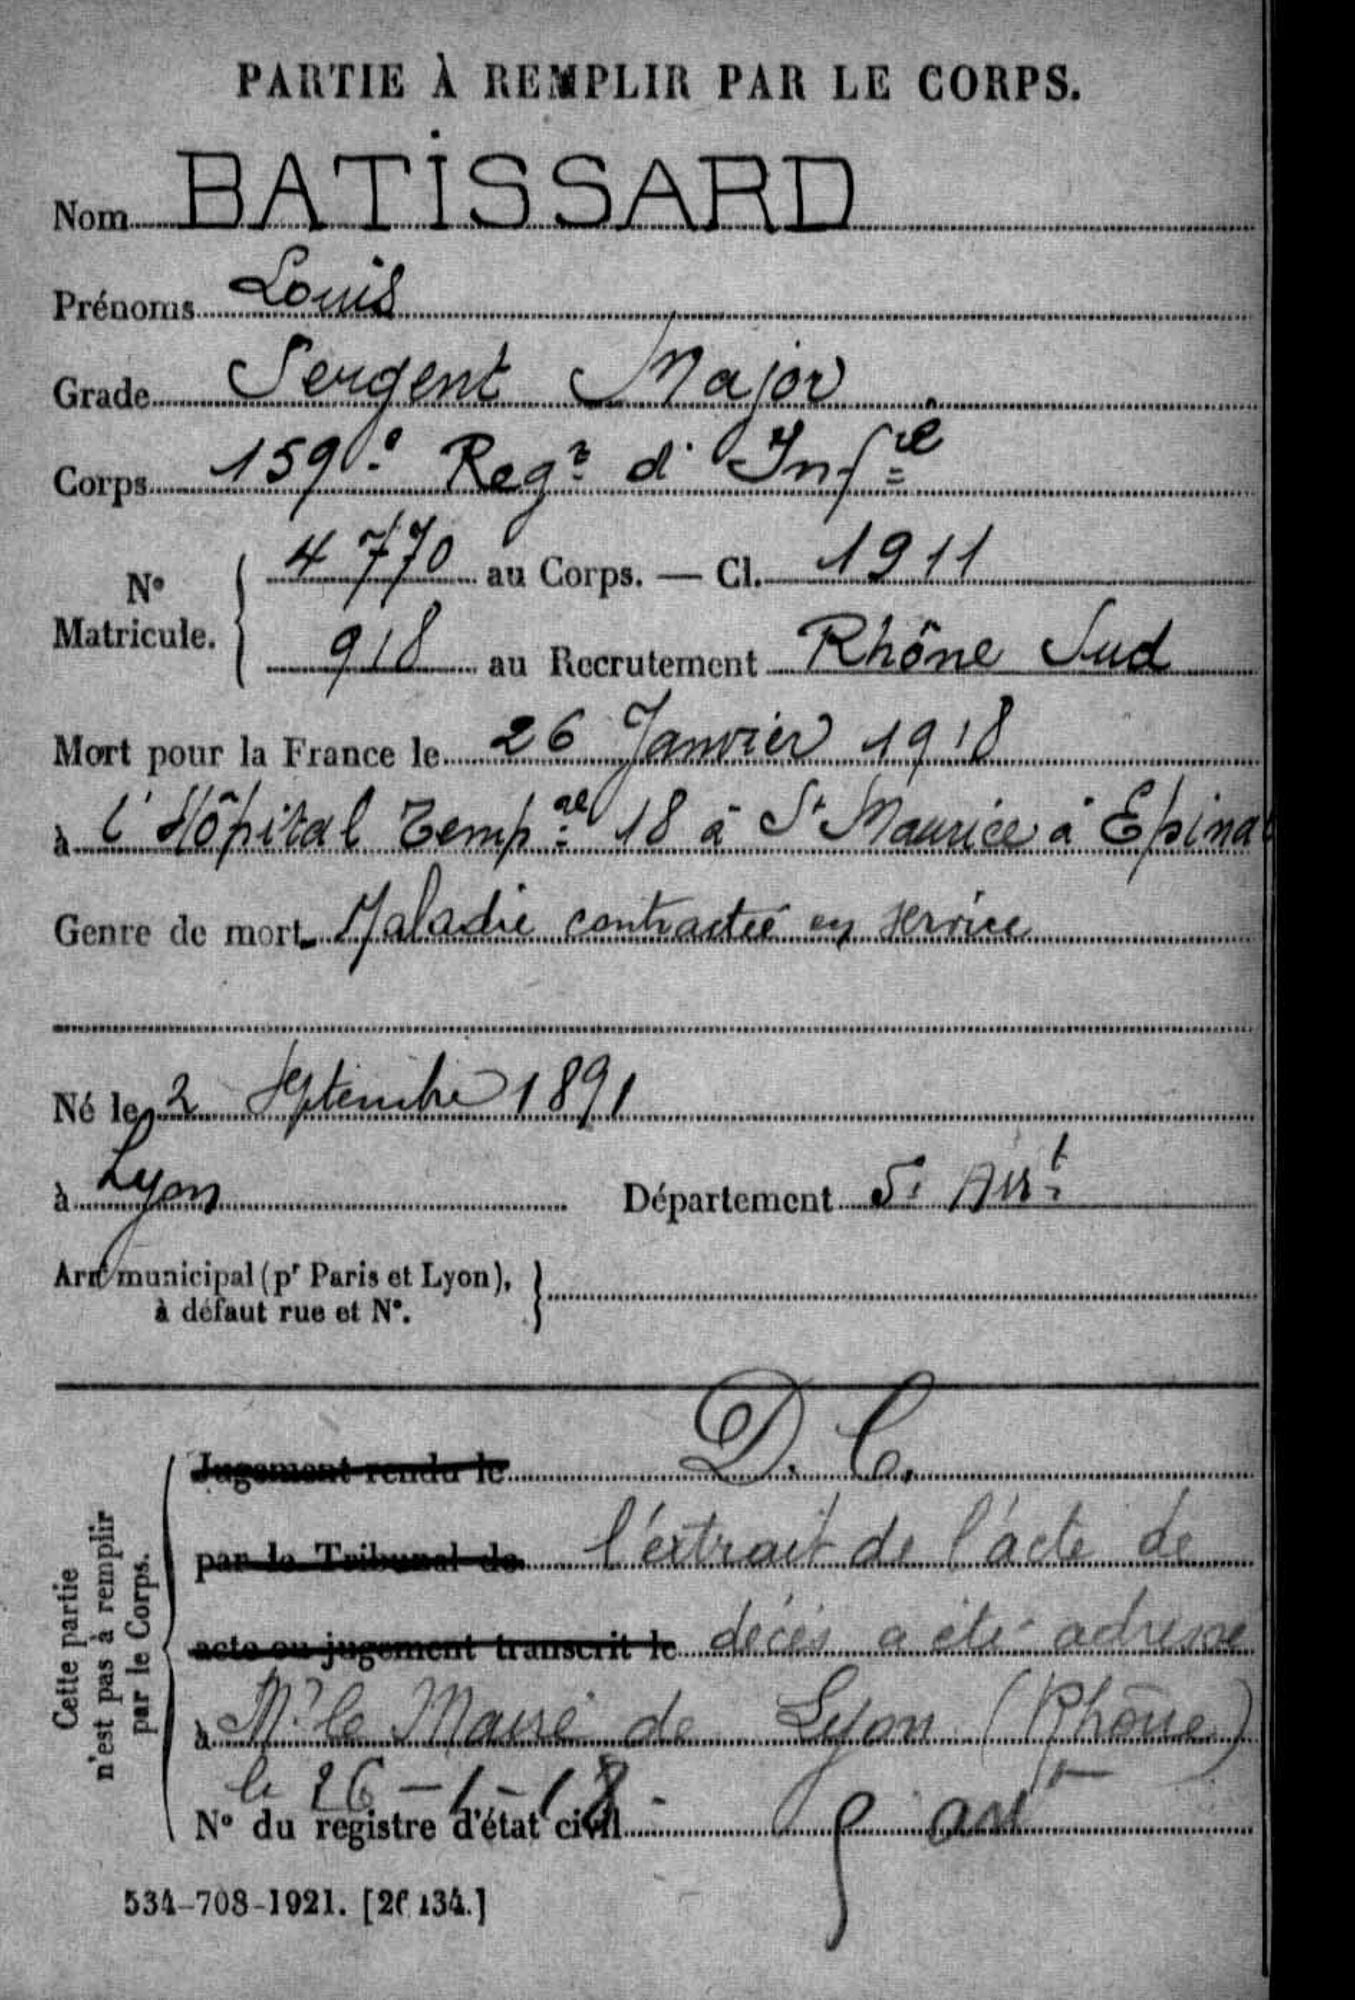 PARTIE À REMPLIR PAR LE CORPS.
Nom BATISSARD
Prénoms Louis
Grade Sergent Major
Corps 159e Regt d'Infie
No Matricule. 4770 au Corps. — Cl. 1911
918 au Recrutement Rhône Sud
Mort pour la France le 26 Janvier 1918
à l'Hôpital Tempre 18 à St Maurice à Epinal
Genre de mort Maladie contractée en service
Né le 2 Septembre 1891
à Lyon Département 5e Arrt
Arrt municipal (pr Paris et Lyon),
à défaut rue et No.
Cette partie
n'est pas à remplir
par le Corps.
Jugement rendu le D.C.
par le Tribunal de l'extrait de l'acte de
acte ou jugement transcrit le décès a été adressé
à Mr le Maire de Lyon (Rhône)
le 26-1-18. arrt
No du registre d'état civil
534-708-1921. [26134.]